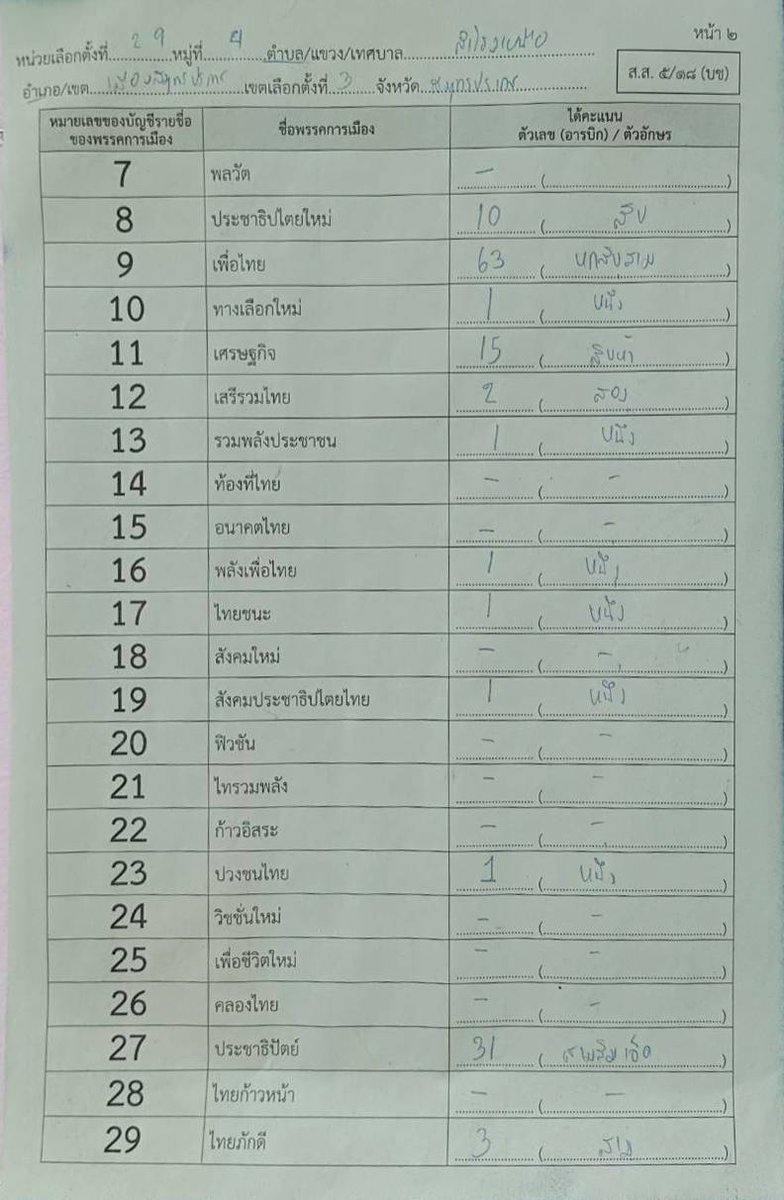 หน้า ๒
หน่วยเลือกตั้งที่ 29 หมู่ที่ 4 ตำบล/แขวง/เทศบาล สำโรงเหนือ
ส.ส. ๕/๑๘ (บช)
อำเภอ/เขต เมืองสมุทรปราการ เขตเลือกตั้งที่ 3 จังหวัด สมุทรปราการ
หมายเลขของบัญชีรายชื่อของพรรคการเมือง ชื่อพรรคการเมือง ได้คะแนน ตัวเลข (อารบิก) / ตัวอักษร
7 พลวัต - ( )
8 ประชาธิปไตยใหม่ 10 (สิบ)
9 เพื่อไทย 63 (หกสิบสาม)
10 ทางเลือกใหม่ 1 (หนึ่ง)
11 เศรษฐกิจ 15 (สิบห้า)
12 เสรีรวมไทย 2 (สอง)
13 รวมพลังประชาชน 1 (หนึ่ง)
14 ท้องที่ไทย - (-)
15 อนาคตไทย - (-)
16 พลังเพื่อไทย 1 (หนึ่ง)
17 ไทยชนะ 1 (หนึ่ง)
18 สังคมใหม่ - (-)
19 สังคมประชาธิปไตยไทย 1 (หนึ่ง)
20 ฟิวชัน - (-)
21 ไทรวมพลัง - (-)
22 ก้าวอิสระ - (-)
23 ปวงชนไทย 1 (หนึ่ง)
24 วิชชั่นใหม่ - (-)
25 เพื่อชีวิตใหม่ - (-)
26 คลองไทย - (-)
27 ประชาธิปัตย์ 31 (สามสิบเอ็ด)
28 ไทยก้าวหน้า - (-)
29 ไทยภักดี 3 (สาม)